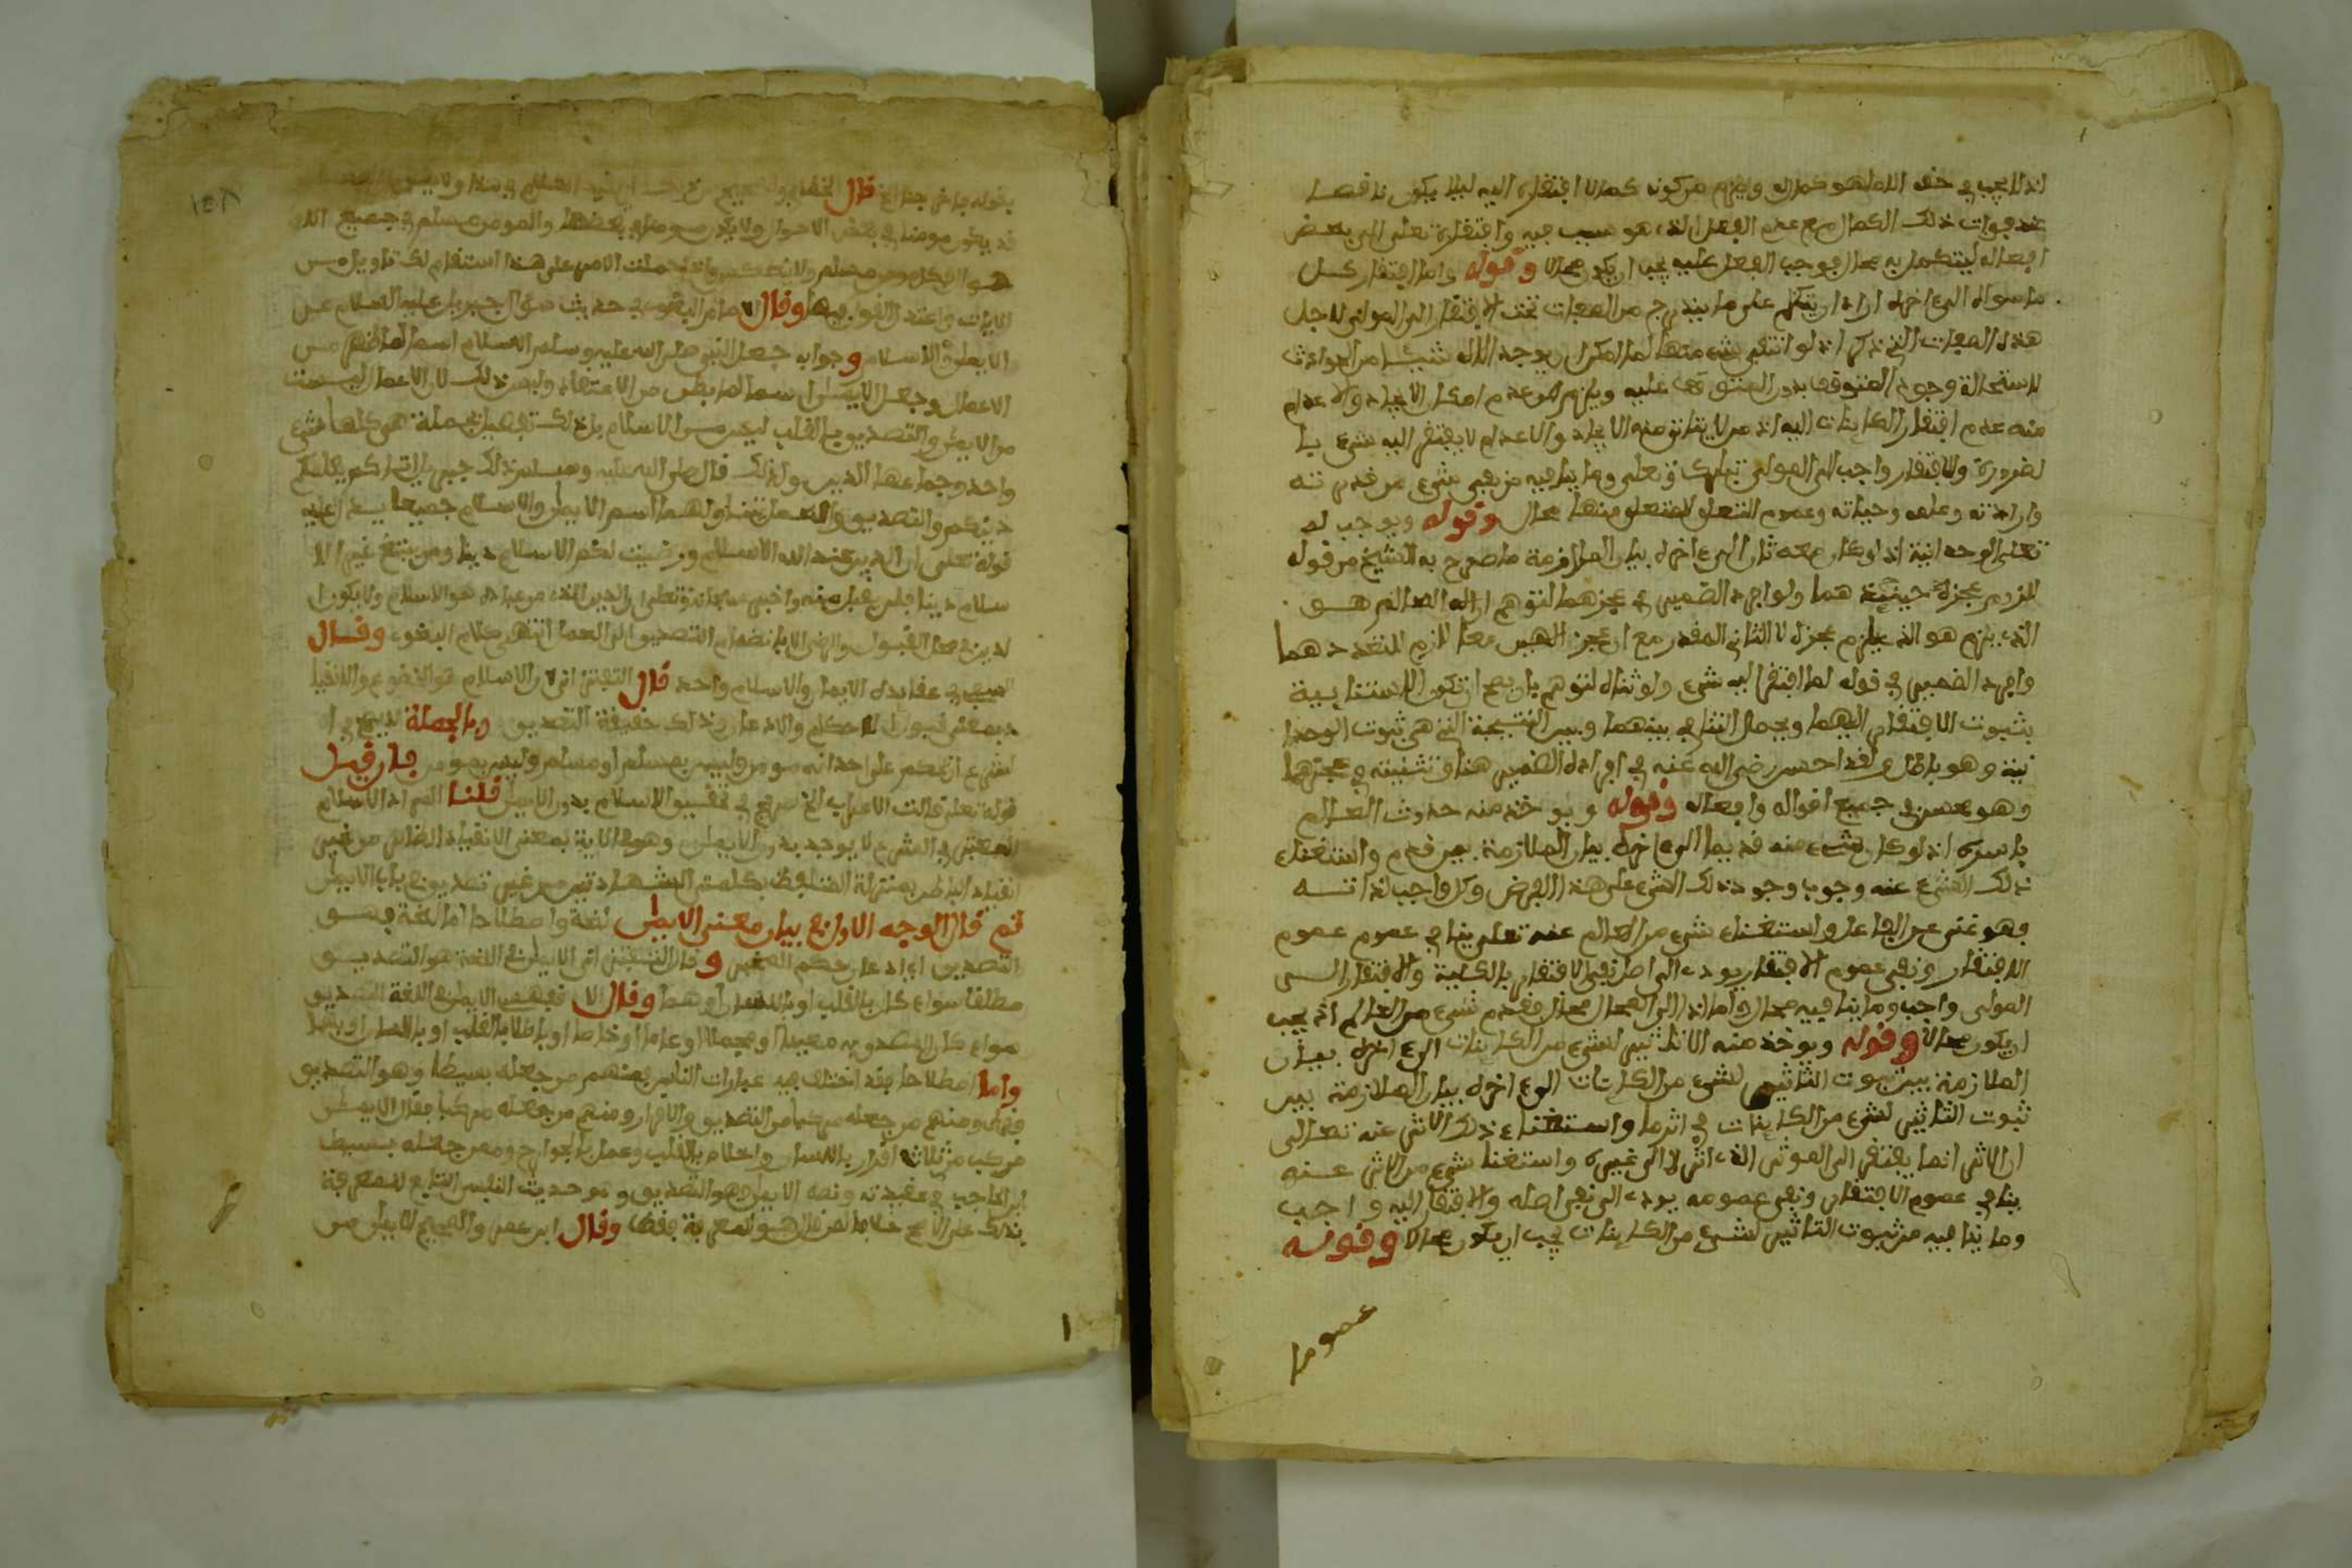 اذ لا يجب في حقه الا ما هو كمال له ويلزم من كونه كمالا افتقاره اليه ليلا يكون ناقصا
عند فوات ذلك الكمال مع عدم الفعل الذي هو سبب فيه وافتقاره تعلى الى بعض
افعاله ليتكمل به محال فوجب الفعل عليه يجب ان يكون محالا وقوله واما افتقار كل
ما سواه الى اخره اراد ان يتكلم على ما يندرج من الصفات تحت الافتقار الى المولى لاجل
هذه الصفات التي ذكر اذ لو انتفى شيء منها لما امكن ان يوجد الله شيئا من الحوادث
لاستحالة وجود المتوقف بدون المتوقف عليه ويلزم من عدم امكان الايجاد والاعدام
منه عدم افتقار الكاينات اليه اذ من لا يتاتى منه الايجاد والاعدام لا يفتقر اليه شيء با
لضرورة والافتقار واجب الى المولى تبارك وتعلى وما ينافيه من نفي شيء من قدرته
وارادته وعلمه وحياته وعموم التعلق للمتعلق منها محال وقوله ويوجب له
تعلى الوحدانية اذ لو كان معه ثان الى اخره بيان الملازمة ما صرح به الشيخ من قوله
للزوم عجزهما حينئذ هما ولو افرد الضمير في عجزهما لتوهم ان اله العالم هو
الذي يلزم هو الذي يلزم عجزه لا الثاني المقدر مع ان عجز الهين معا لازم لتعددهما
وافرد الضمير في قوله لما افتقر اليه شيء ولو ثناه لتوهم بان يصح ان تكون الاستثنايية
بثبوت الافتقار اليهما ويحصل التنافي بينهما وبين النتيجة التي هي ثبوت الوحدا
نية وهو باطل ولقد احسن رضي الله عنه في افراد الضمير هنا وتثنيته في عجزهما
وهو محسن في جميع اقواله وافعاله وقوله ويوخذ منه حدوث العالم
باسره اذ لو كان شيء منه قديما الى اخره بيان الملازمة بين قدم واستغناء
ذلك الشيء عنه وجوب وجود ذلك الشيء على هذا الفرض وكل واجب لذاته
فهو غني عن الفاعل واستغناء شيء من العالم عنه تعلى ينافي عموم عموم
الافتقار ونفي عموم الافتقار يودي الى اصل نفي الافتقار بالكلية والافتقار الى
المولى واجب وما ينافيه محال وما ادى الى المحال محال فقدم شيء من العالم اذا يجب
ان يكون محالا وقوله ويوخذ منه الا تاثير لشيء من الكاينات الى اخره بيان
الملازمة بين ثبوت التاثير لشيء من الكاينات الى اخره بيان الملازمة بين
ثبوت التاثير لشيء من الكاينات في اثر ما واستغناء ذلك الاثر عنه تعالى
ان الاثر انما يفتقر الى الموثر الذي اثر لا الى غيره واستغنا شيء من الاثر عنه
ينافي عموم الافتقار ونفي عمومه يودي الى نفي اصله والافتقار اليه واجب
وما ينافيه من ثبوت التاثير لشيء من الكاينات يجب ان يكون محالا وقوله
عموما
قال
قد يكون مومنا في بعض الاحوال ولا يكون مومنا في بعضها والمومن مسلم في جميع الا
فكل مومن مسلم ولا ينعكس واذا حملت الامر على هذا استقام لك تاويل
الايات واعتدل القول فيها وقال الامام البغوي في حديث سوال جبريل عليه السلام عن
الايمان والاسلام وجوابه جعل النبي صلى الله عليه وسلم الاسلام اسما لما ظهر من
الاعمال وجعل الايمان اسما لما بطن من الاعتقاد وليس ذلك لان الاعمال ليست
من الايمان والتصديق بالقلب ليس من الاسلام بل ذلك تفصيل لجملة هي كلها شيء
واحد وجماعها الدين ولذلك قال صلى الله عليه وسلم ذلك جبريل اتاكم يعلمكم
دينكم والتصديق والعمل يتناولهما اسم الايمان والاسلام جميعا يدل عليه
قوله تعلى ان الدين عند الله الاسلام ورضيت لكم الاسلام دينا ومن يبتغ غير الا
سلام دينا فلن يقبل منه واخبر سبحانه وتعلى ان الدين الذي هو الاسلام ولا يكون
الدين في محل القبول والرضى الا بانضمام التصديق الى العمل انتهى كلام البغوي وقال
في عقايده الايمان والاسلام واحد قال التفتزاني لان الاسلام هو الخضوع والانقيا
د بمعنى قبول الاحكام والاذعان وذلك حقيقة التصديق وبالجملة لا يصح في ا
لشرع ان يحكم على احد انه مومن وليس بمسلم او مسلم وليس بمومن فان قيل
قوله تعلى قالت الاعراب الخ صريح في تحقيق الاسلام بدون الايمان قلنا المراد الاسلام
المعتبر في الشرع لا يوجد بدون الايمان وهو في الاية بمعنى الانقياد الظاهر من غير
انقياد الباطن بمنزلة المتلفظ بكلمتي الشهادتين من غير تصديق في باب الايمان
ثم قال الوجه الاول في بيان معنى الايمان لغة واصطلاحا اما لغة فهو
التصديق اي اذعان حكم المخبر وقال التفتزاني الايمان في اللغة هو التصديق
مطلقا سواء كان بالقلب او باللسان او هما وقال الايمان في اللغة التصديق
سواء كان المصدق به معينا او مجملا او عاما او خاصا بالقلب او باللسان
واما اصطلاحا فقد اختلف فيه عبارات الناس فمنهم من جعله بسيطا وهو التصديق
فقط ومنهم من جعله مركبا من التصديق والاقرار ومنهم من جعله مركبا فقال الايمان
مركب من ثلاث اقرار باللسان واعلام بالقلب وعمل بالجوارح وممن جعله بسيطا
ابن الحاجب في عقيدته ونصه الايمان هو التصديق وهو حديث النفس التابع للمعرفة
بذلك على الاصح خلافا لمن قال هو المعرفة فقط وقال ابن عمر والصحيح